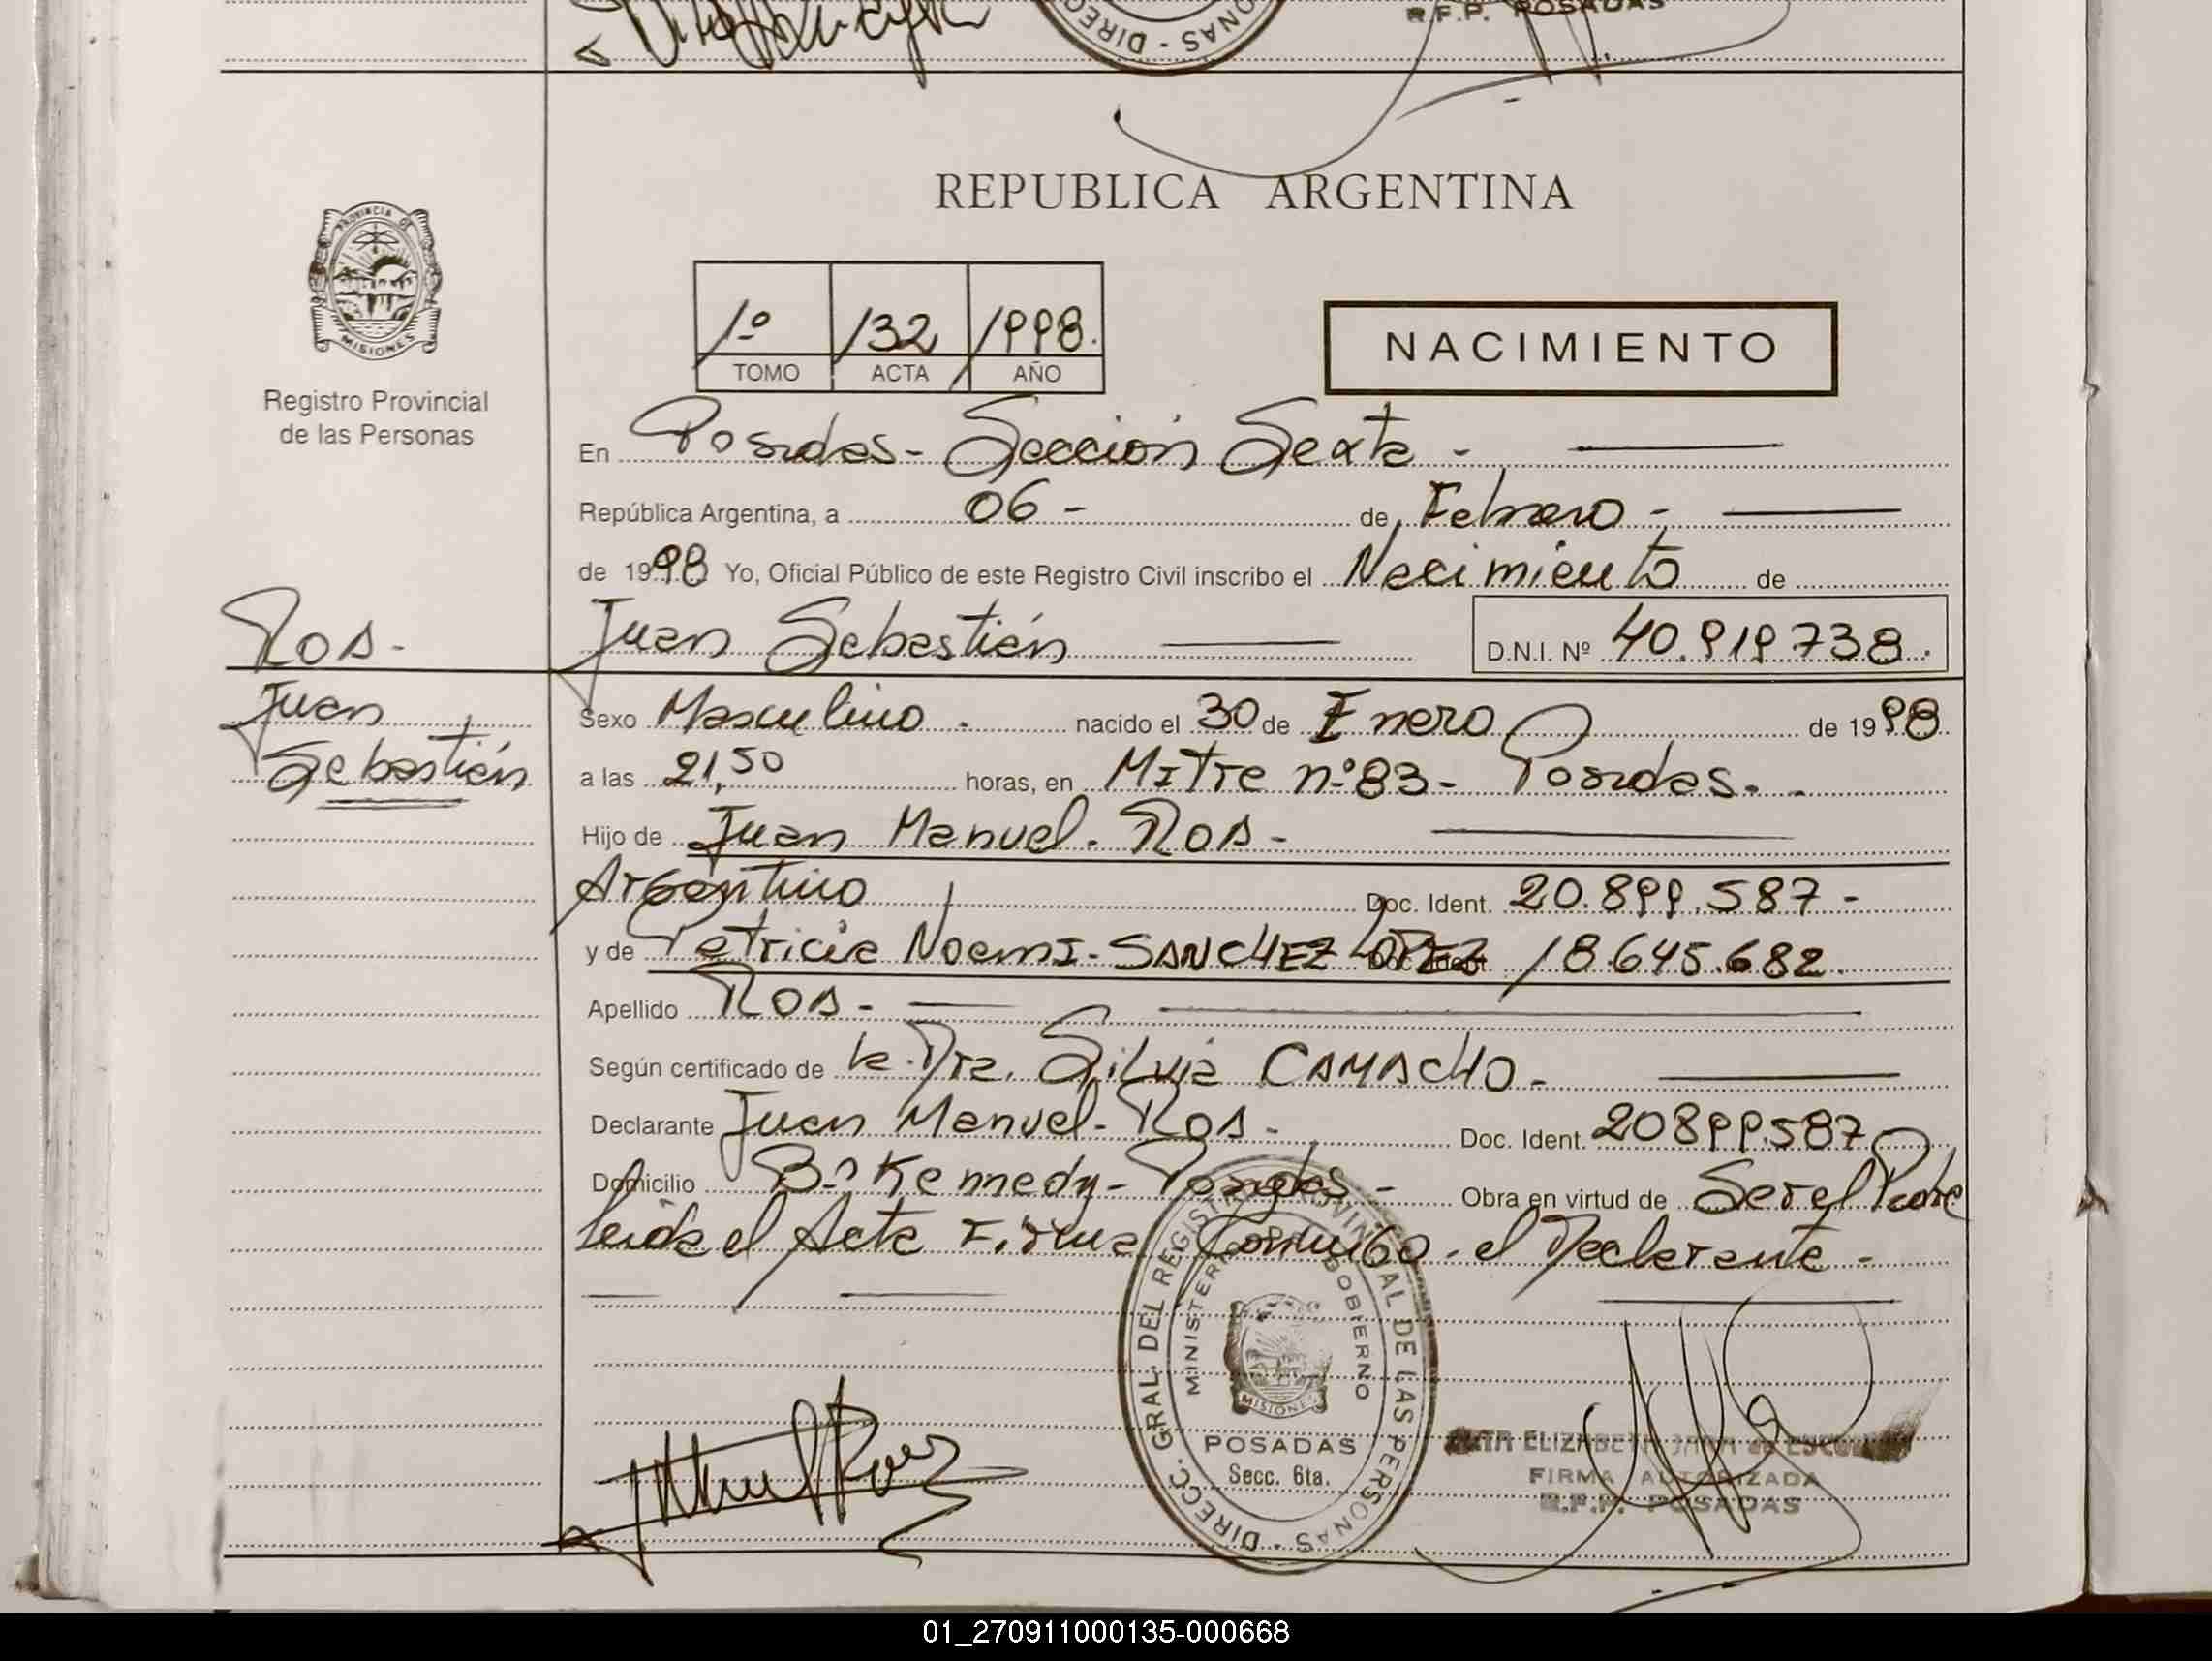 R.F.P. POSADAS
REPUBLICA ARGENTINA
PROVINCIA DE
MISIONES
Registro Provincial
de las Personas
1º 132 1998.
TOMO ACTA AÑO
NACIMIENTO
En Posadas - Sección Sexta -
República Argentina, a 06 - de Febrero -
de 1998 Yo, Oficial Público de este Registro Civil inscribo el Nacimiento de
Ros - Juan Sebastián D.N.I. Nº 40.919.738.
Juan
Sebastián
Sexo Masculino - nacido el 30 de Enero de 1998
a las 21,50 horas, en Mitre nº 83 - Posadas. -
Hijo de Juan Manuel - Ros -
Argentino Doc. Ident. 20.899.587 -
y de Patricia Noemi - SANCHEZ LOPEZ Doc. Ident. 18.645.682.
Apellido Ros -
Según certificado de la Dra. Silvia CAMACHO -
Declarante Juan Manuel - Ros - Doc. Ident. 20899.587 -
Domicilio Bº Kennedy - Posadas - Obra en virtud de Ser el Padre
leída el Acta Firma Conmigo - el Declarante -
DIRECC. GRAL. DEL REGISTRO PROVINCIAL DE LAS PERSONAS
MINISTERIO DE GOBIERNO
MISIONES
POSADAS
Secc. 6ta.
ELIZABETH JARA de
FIRMA AUTORIZADA
R.P.P. POSADAS
01_270911000135-000668